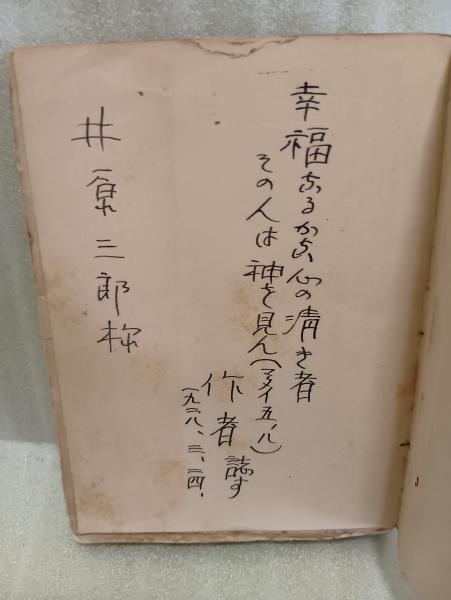 幸福なるかな心の清き者
その人は神を見ん（マタイ五ノ八）
作者誌す
（一九二八、三、二四、
井原三郎様